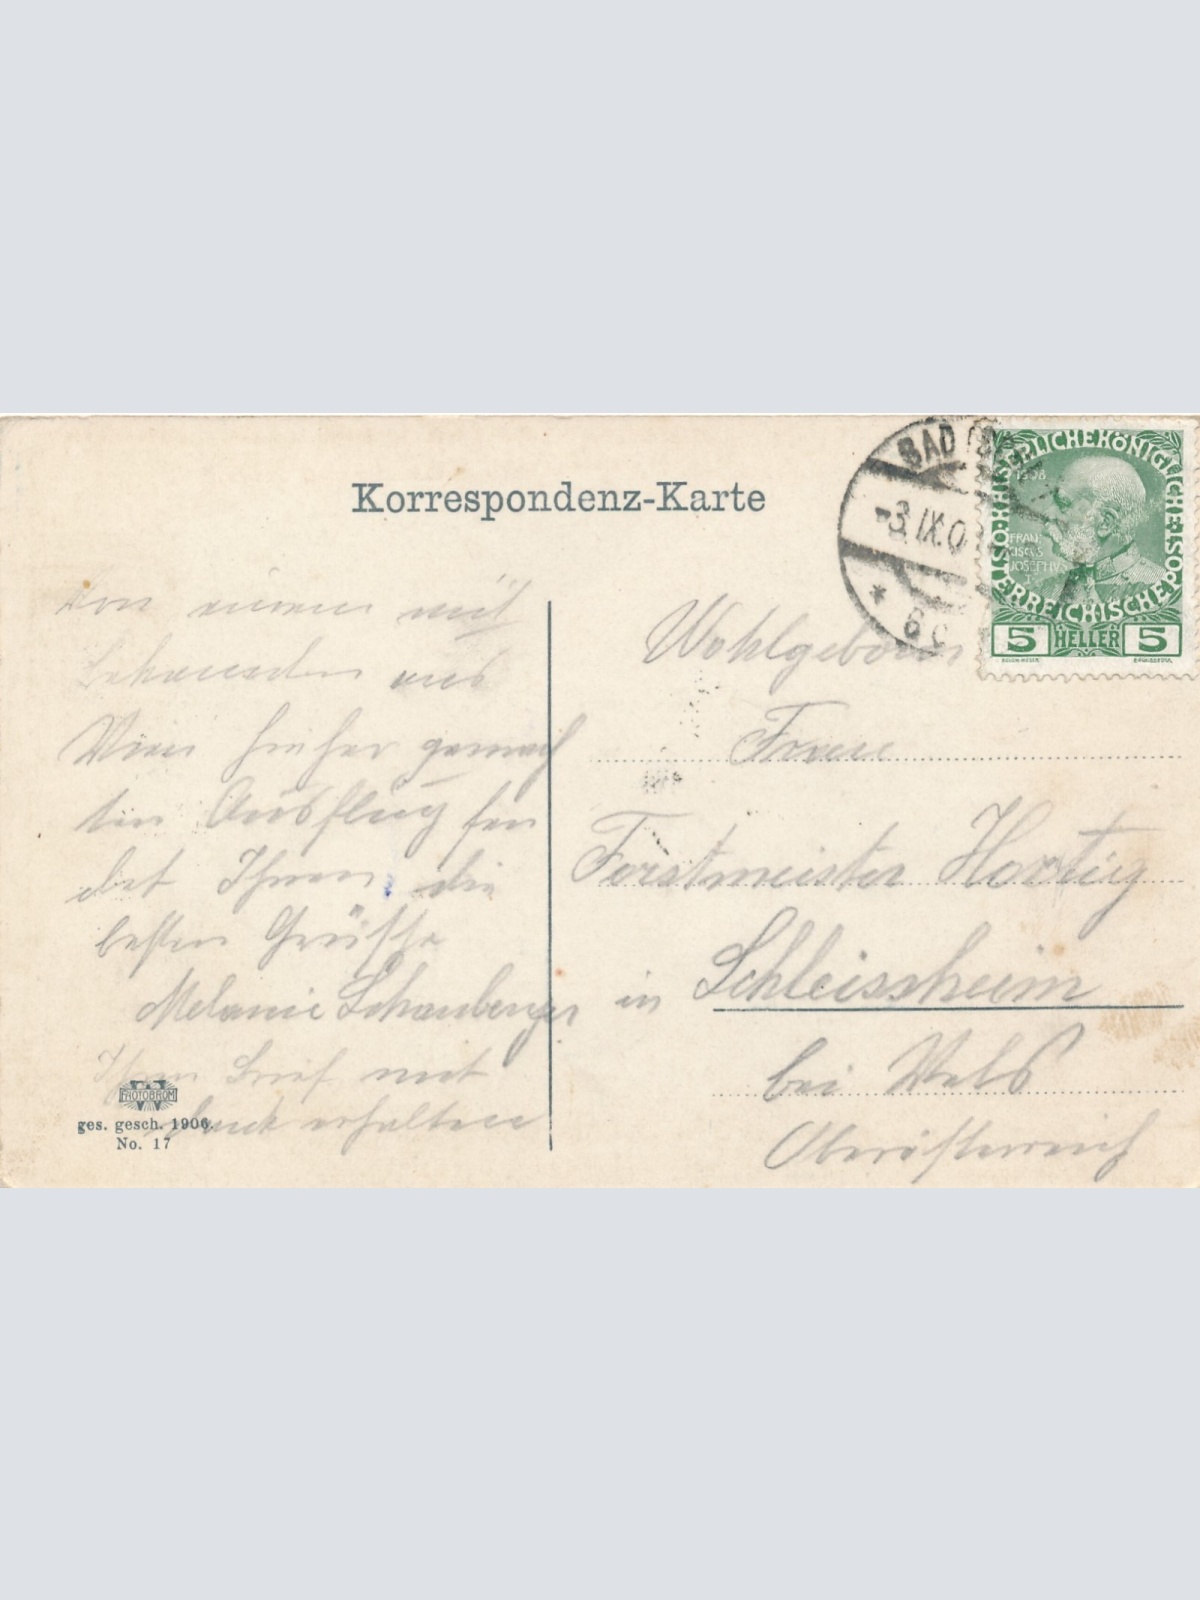 Korrespondenz-Karte
BAD
-3.IX.0
* 6
KAISERLICHE KÖNIGLICHE ÖSTERREICHISCHE POST
1908
FRAN
CISCVS
JOSEPHVS
I
5 HELLER 5
Von einem mit
Bekannten aus
Wien hieher gemach
ten Ausflug sen
det Ihnen die
besten Grüsse
Melanie Schauberger
Ihren Brief mit
Dank erhalten
Wohlgeboren
Frau
Forstmeister Hartig
in Schleissheim
bei Wels
Oberösterreich
PHOTOBROM
ges. gesch. 1906.
No. 17